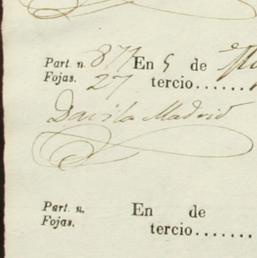 Part. n. 877 En 5 de
Fojas. 27 tercio.......
Davila Madrid
Part. n. En de
Fojas. tercio.......